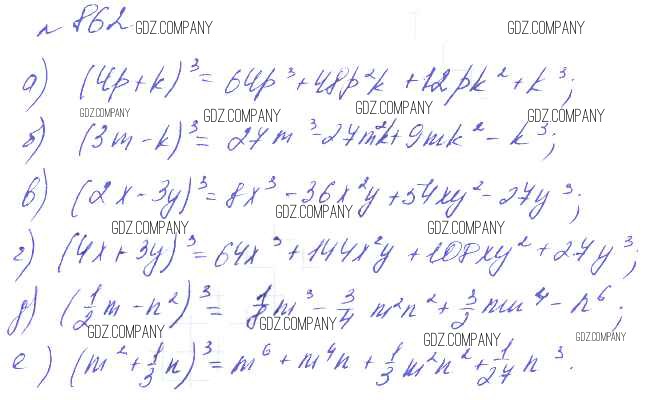 № 862 GDZ.COMPANY GDZ.COMPANY
а) (4p + k)³ = 64p³ + 48p²k + 12pk² + k³;
GDZ.COMPANY GDZ.COMPANY GDZ.COMPANY GDZ.COMPANY
б) (3m - k)³ = 27m³ - 27m²k + 9mk² - k³;
в) (2x - 3y)³ = 8x³ - 36x²y + 54xy² - 27y³;
GDZ.COMPANY GDZ.COMPANY GDZ.COMPANY
г) (4x + 3y)³ = 64x³ + 144x²y + 108xy² + 27y³;
д) (1/2 m - n²)³ = 1/8 m³ - 3/4 m²n² + 3/2 mn⁴ - n⁶;
GDZ.COMPANY GDZ.COMPANY GDZ.COMPANY GDZ.COMPANY
е) (m² + 1/3 n)³ = m⁶ + m⁴n + 1/3 m²n² + 1/27 n³.